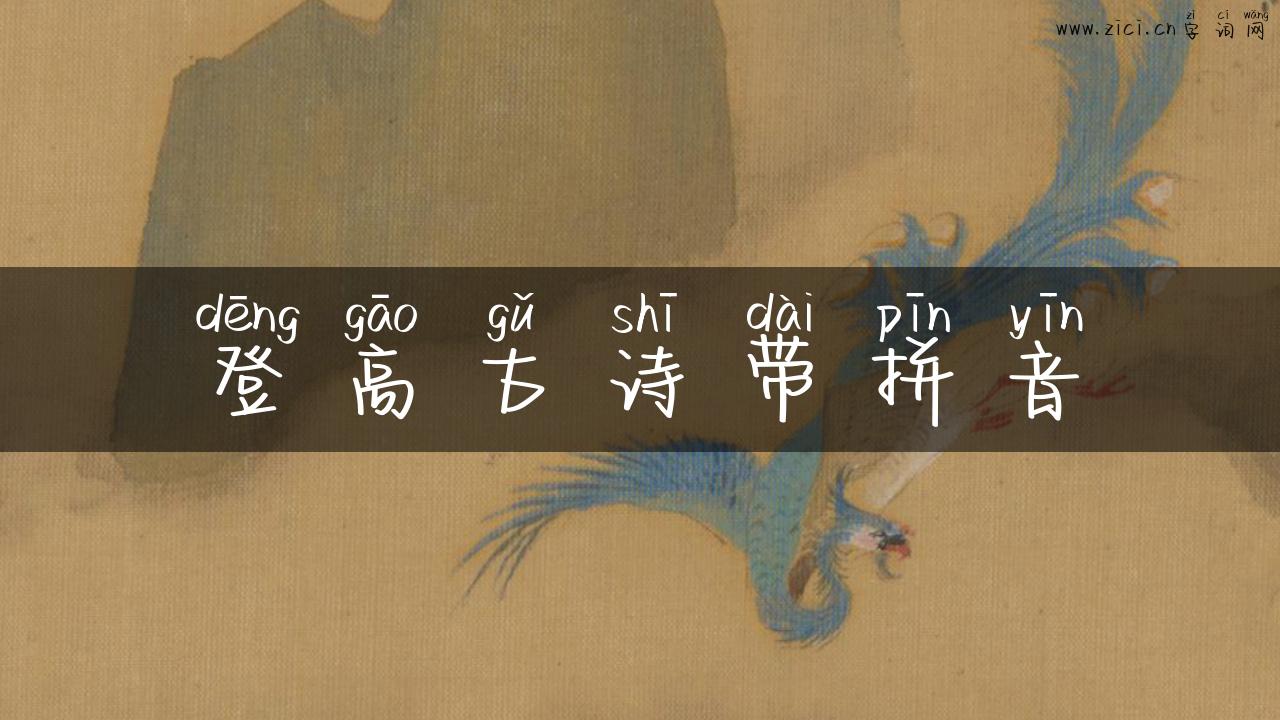 zì cí wǎng
www.zici.cn 字词网
dēng gāo gǔ shī dài pīn yīn
登高古诗带拼音